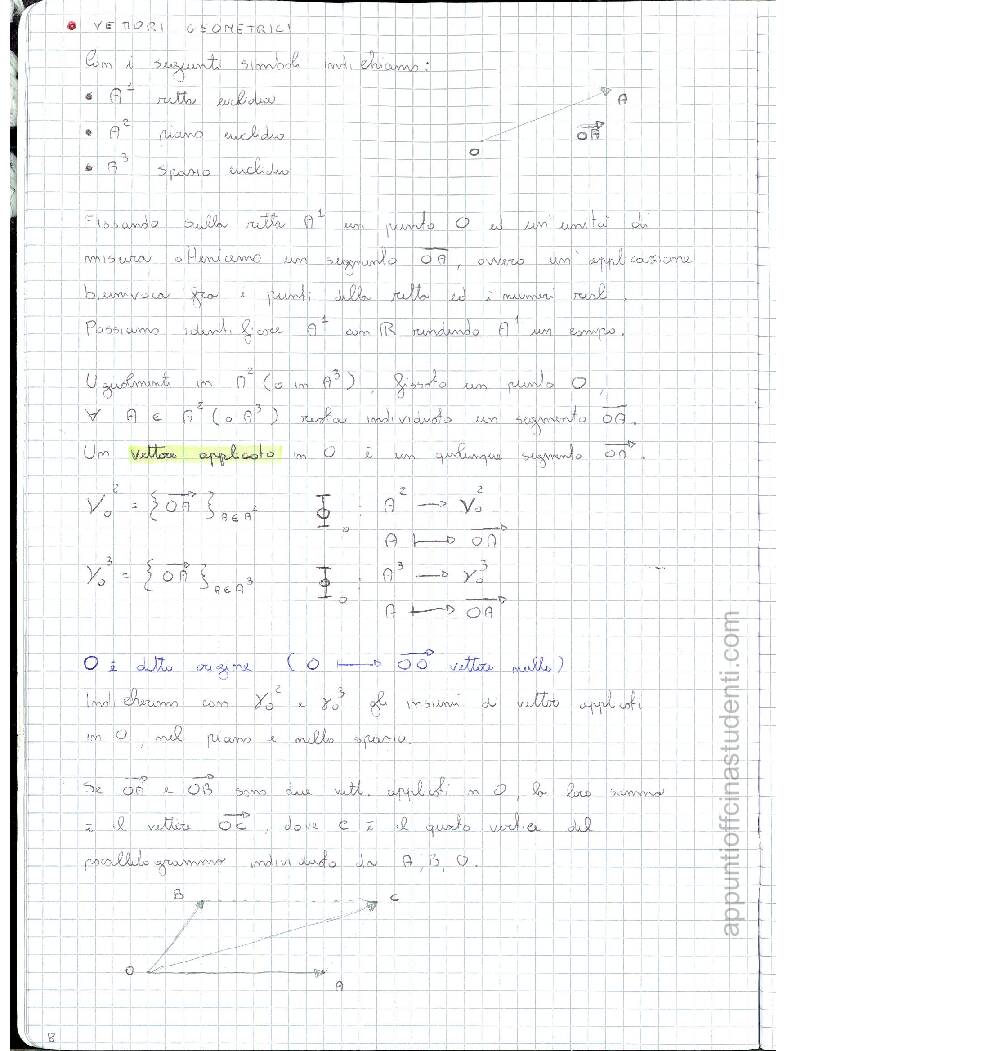 VETTORI GEOMETRICI
Con i seguenti simboli indichiamo:
• A¹ retta euclidea
• A² piano euclideo
• A³ spazio euclideo
A
OA
O
Fissando sulla retta A¹ un punto O ed un'unità di
misura otteniamo un segmento OA, ovvero un'applicazione
biunivoca fra i punti della retta ed i numeri reali.
Possiamo identificare A¹ con ℝ rendendo A¹ un campo.
Ugualmente in A² (o in A³), fissato un punto O,
∀ A ∈ A² (o A³) resta individuato un segmento OA.
Un vettore applicato in O è un qualunque segmento OA.
V₀² = {OA}A∈A² Φ₀ : A² → V₀²
A ↦ OA
V₀³ = {OA}A∈A³ Φ₀ : A³ → V₀³
A ↦ OA
O è detto origine (O ↦ OO vettore nullo)
Indicheremo con V₀² e V₀³ gli insiemi di vettori applicati
in O, nel piano e nello spazio.
Se OA e OB sono due vett. applicati in O, la loro somma
è il vettore OC, dove C è il quarto vertice del
parallelogramma individuato da A, B, O.
B C
O
A
8
appuntiofficinastudenti.com